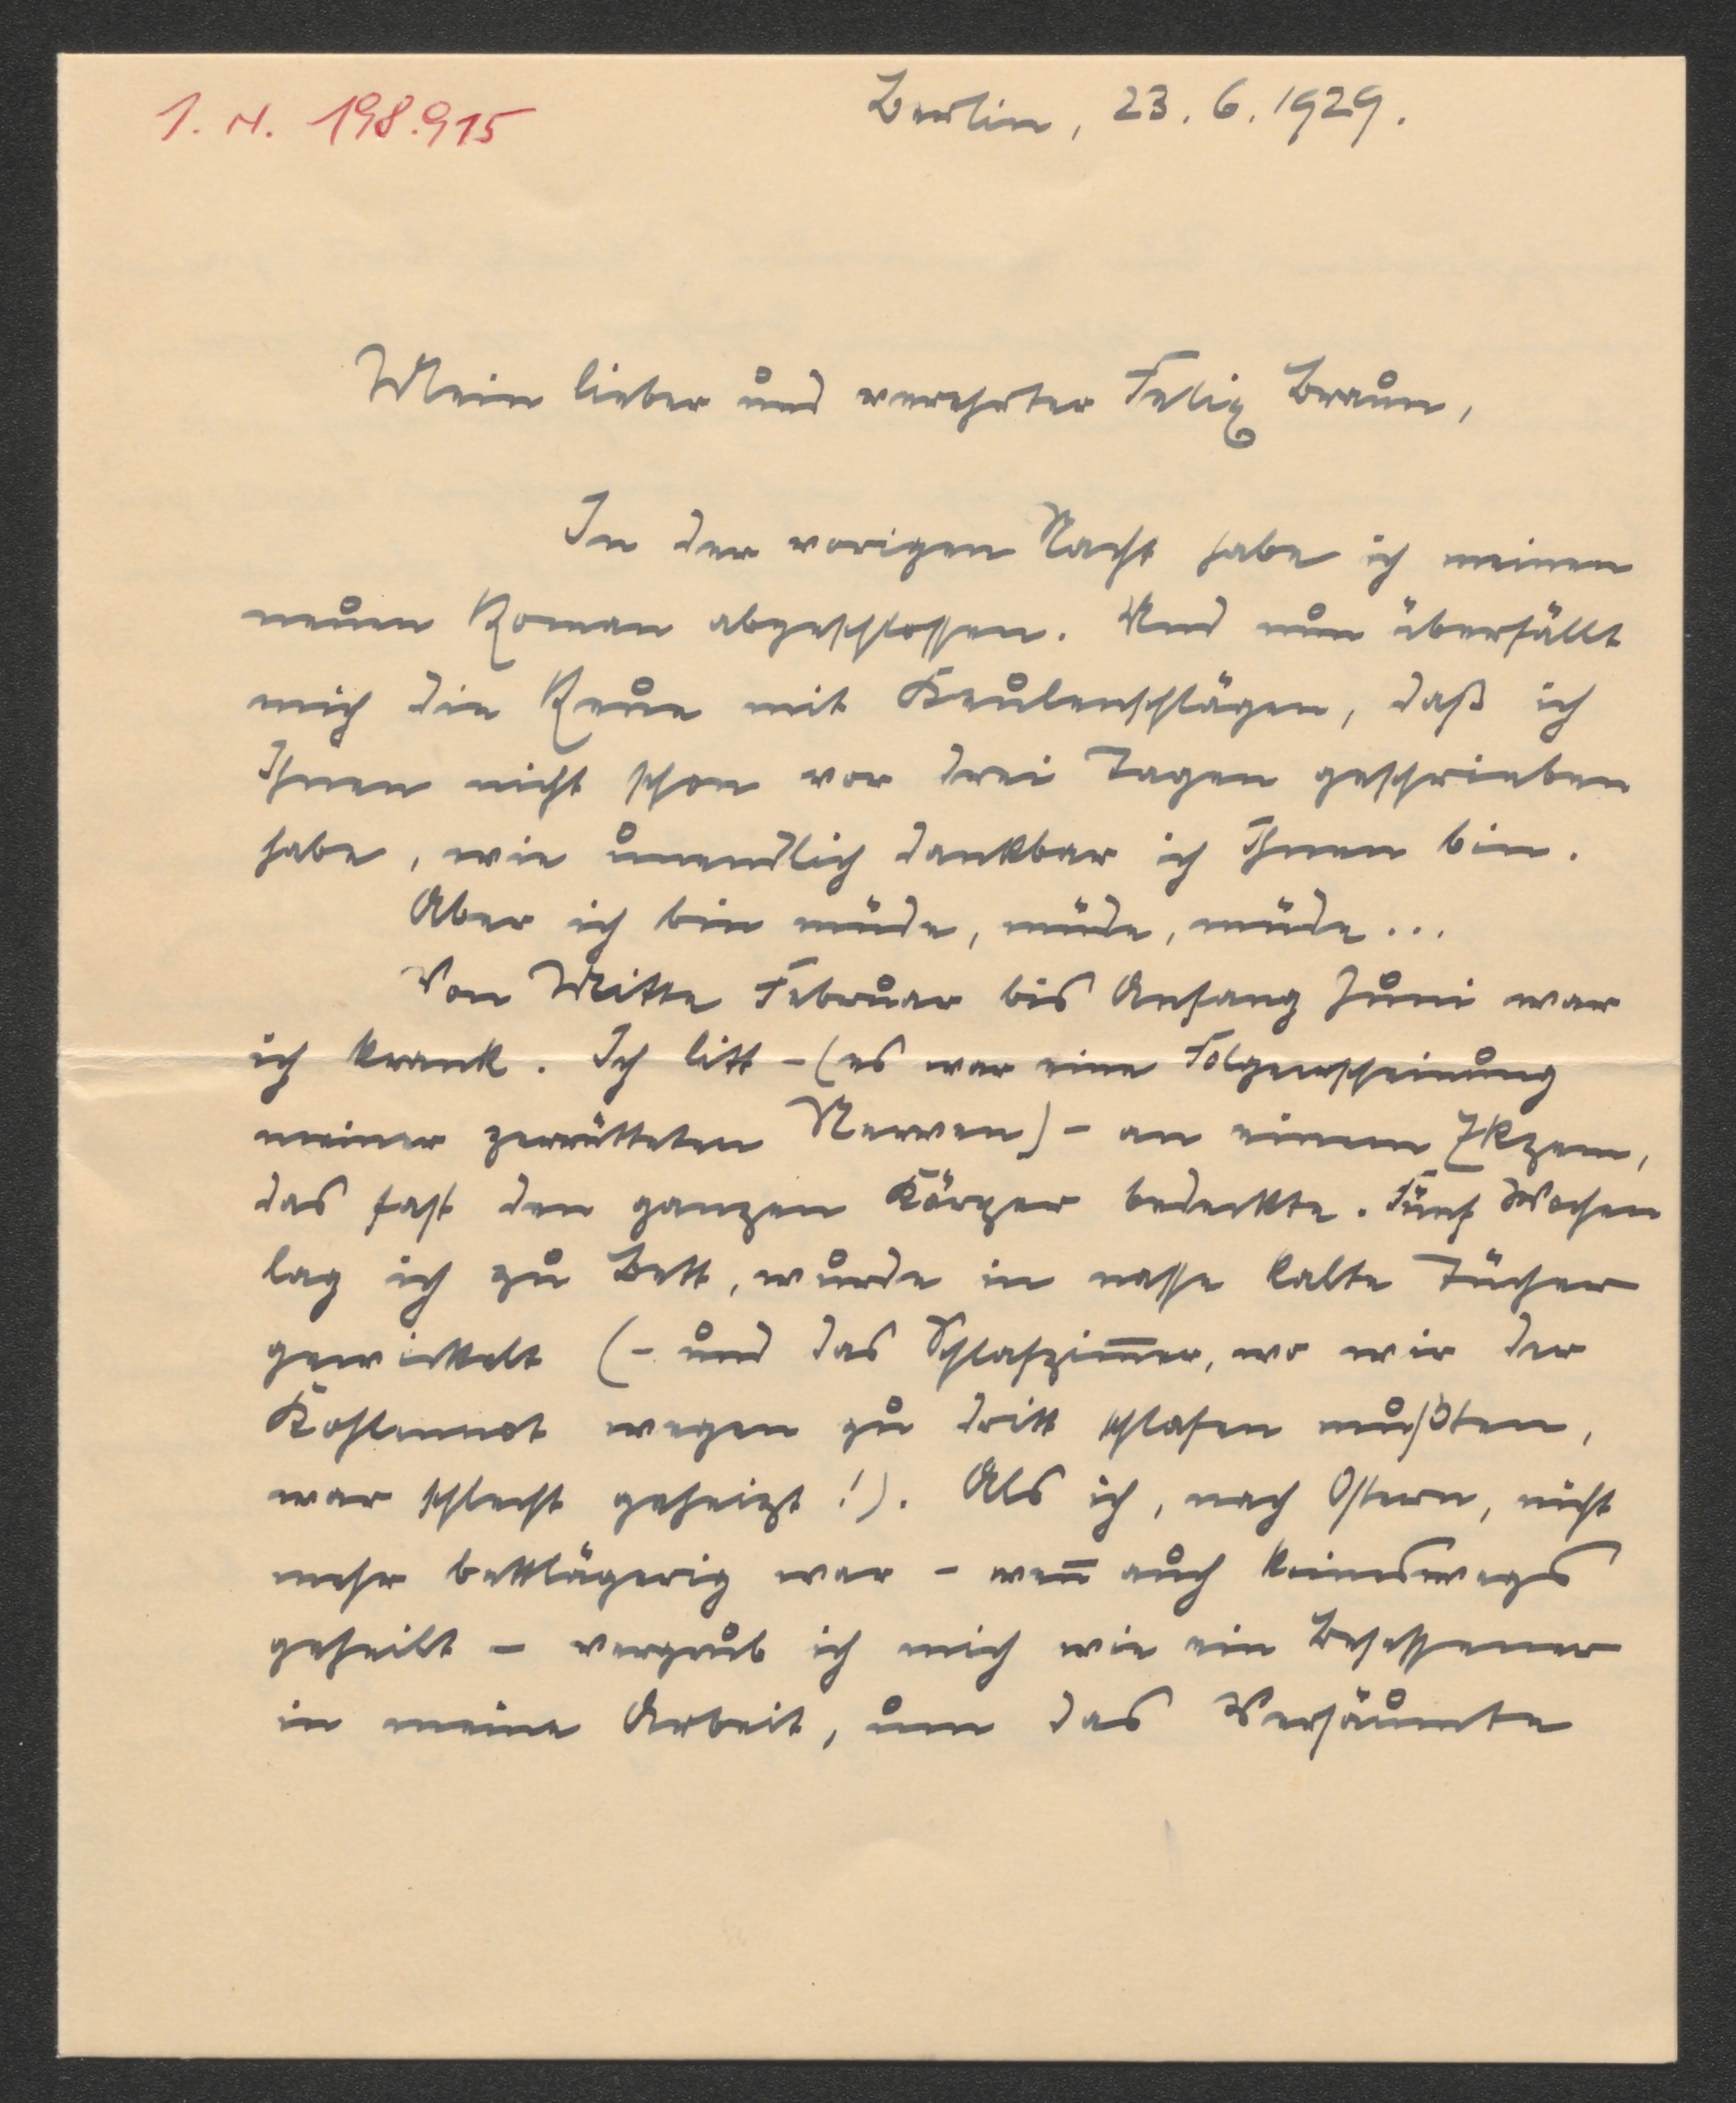 I. N. 198.915
Berlin, 23. 6. 1929.
Mein lieber und verehrter Felix Braun,
In der vorigen Nacht habe ich meinen
neuen Roman abgeschlossen. Und nun überfällt
mich die Reue mit Keulenschlägen, daß ich
Ihnen nicht schon vor drei Tagen geschrieben
habe, wie unendlich dankbar ich Ihnen bin.
Aber ich bin müde, müde, müde...
Von Mitte Februar bis Anfang Juni war
ich krank. Ich litt – (es war eine Folgeerscheinung
meiner zerrütteten Nerven) – an einem Ekzem,
das fast den ganzen Körper bedeckte. Fünf Wochen
lag ich zu Bett, wurde in nasse kalte Tücher
gewickelt (– und das Schlafzim̅er, wo wir der
Kohlennot wegen zu dritt schlafen mußten,
war schlecht geheizt!). Als ich, nach Ostern, nicht
mehr bettlägerig war – wen̅ auch keineswegs
geheilt – vergrub ich mich wie ein Besessener
in meine Arbeit, um das Versäumte